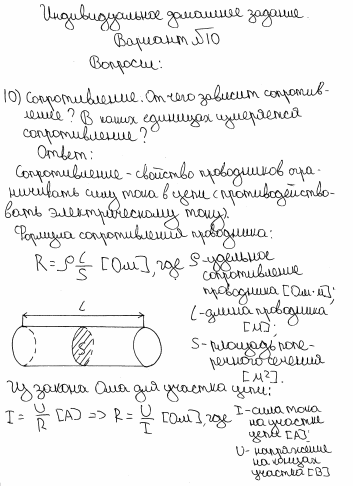 Индивидуальное домашнее задание.
Вариант №10
Вопросы:
10) Сопротивление. От чего зависит сопротив-
ление? В каких единицах измеряется
сопротивление?
Ответ:
Сопротивление - свойство проводников огра-
ничивать силу тока в цепи (противодейство-
вать электрическому току).
Формула сопротивления проводника:
R = ρ l/S [Ом], где ρ - удельное
сопротивление
проводника [Ом·м];
l - длина проводника
[м];
S - площадь попе-
речного сечения
[м²].
l
S
Из закона Ома для участка цепи:
I = U/R [А] => R = U/I [Ом], где I - сила тока
на участке
цепи [А];
U - напряжение
на концах
участка [В]